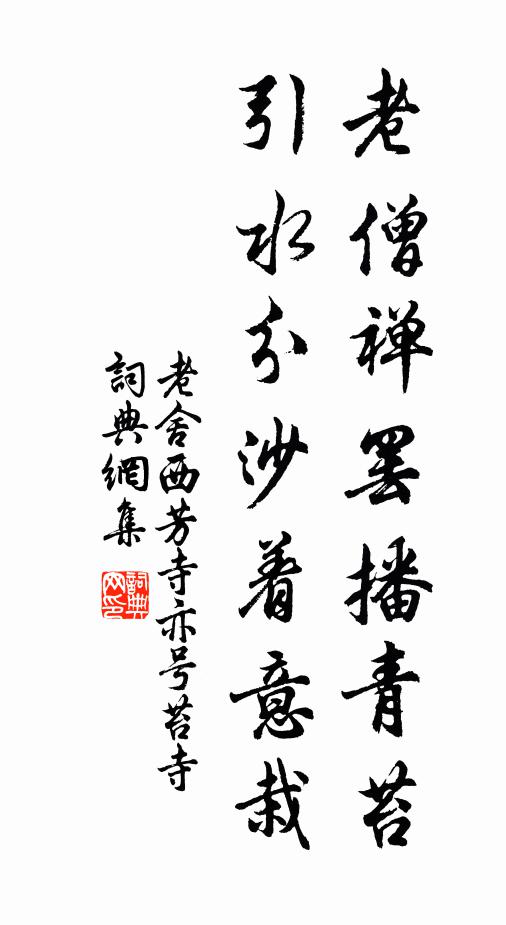 老僧禅罢播青苔
引水分沙着意栽
老舍西芳寺亦号苔寺
詞典網集
詞典网印